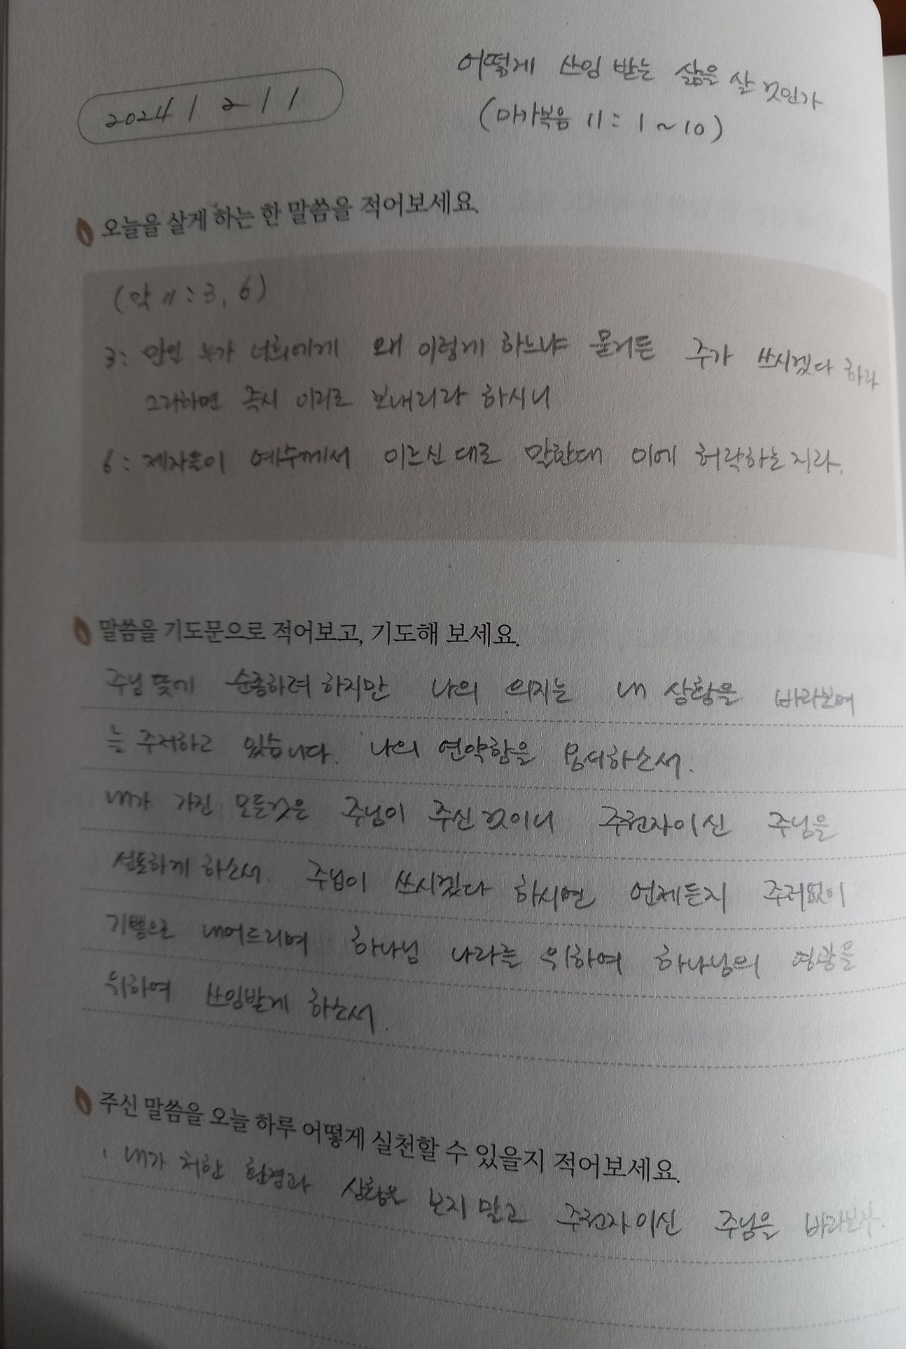 어떻게 쓰임 받는 삶을 살 것인가
2024 / 2 / 1
(마가복음 11 : 1 ~ 10)
오늘을 살게 하는 한 말씀을 적어보세요.
(막 11 : 3, 6)
3 : 만일 누가 너희에게 왜 이렇게 하느냐 묻거든 주가 쓰시겠다 하라
그리하면 즉시 이리로 보내리라 하시니
6 : 제자들이 예수께서 이르신 대로 말한대 이에 허락하는지라.
말씀을 기도문으로 적어보고, 기도해 보세요.
주님 뜻에 순종하려 하지만 나의 의지는 내 상황을 바라보며
늘 주저하고 있습니다. 나의 연약함을 용서하소서.
내가 가진 모든것은 주님이 주신 것이니 주권자이신 주님을
선포하게 하소서. 주님이 쓰시겠다 하시면 언제든지 주저없이
기쁨으로 내어드리며 하나님 나라를 위하여 하나님의 영광을
위하여 쓰임받게 하소서.
주신 말씀을 오늘 하루 어떻게 실천할 수 있을지 적어보세요.
내가 처한 환경과 상황을 보지 말고 주권자이신 주님을 바라보자.